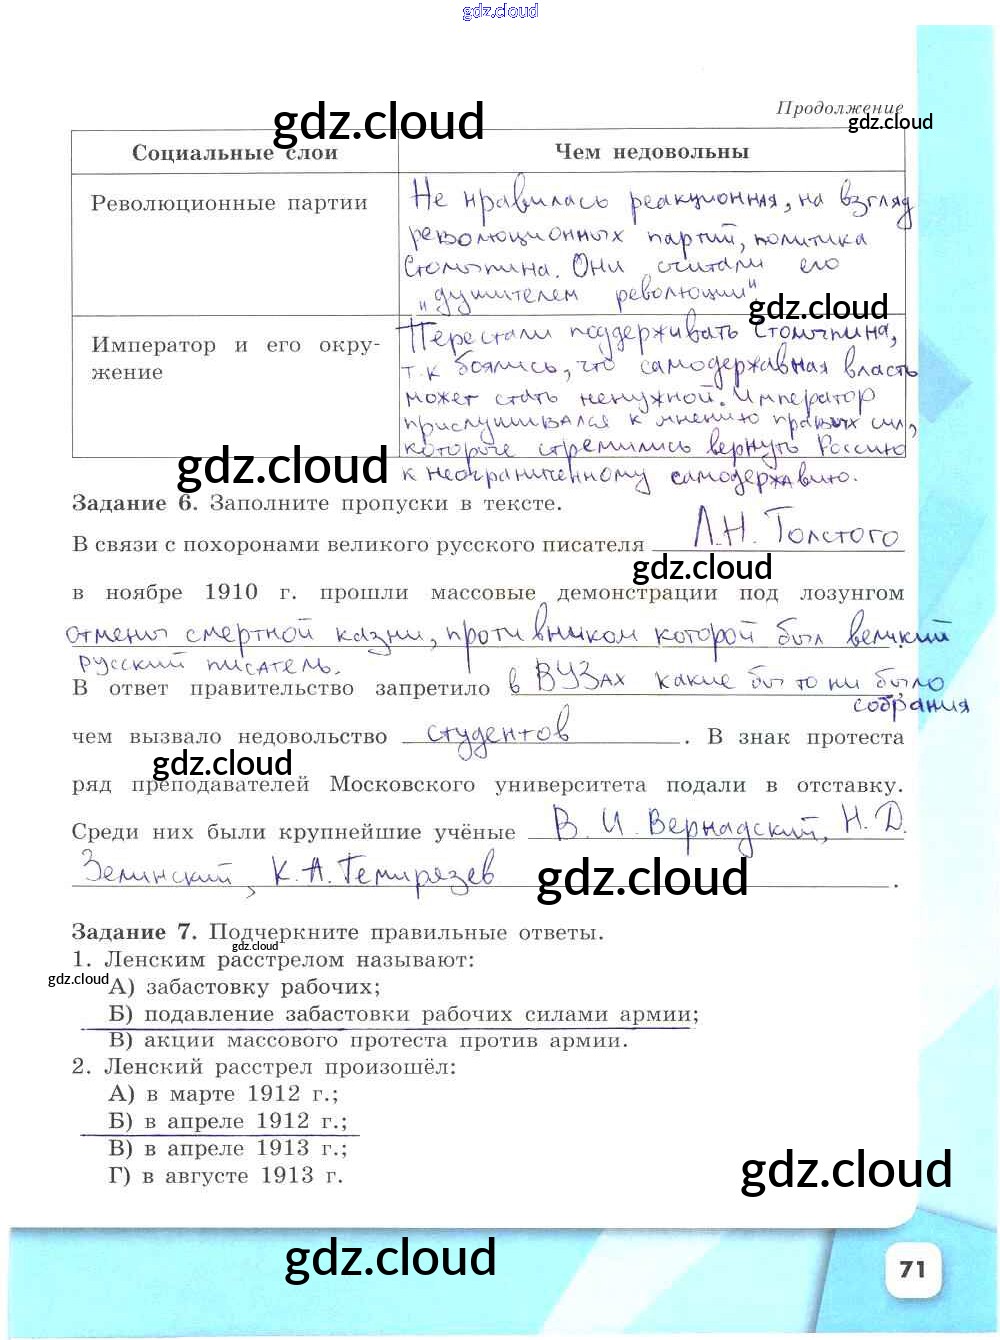 gdz.cloud
Продолжение
gdz.cloud
gdz.cloud
Социальные слои
Чем недовольны
Революционные партии
Не нравилась реакционная, на взгляд
революционных партий, политика
Столыпина. Они считали его
"душителем революции"
gdz.cloud
Император и его окру-
жение
Перестали поддерживать Столыпина,
т.к боялись, что самодержавная власть
может стать ненужной. Император
прислушивался к мнению правых сил,
которые стремились вернуть Россию
к неограниченному самодержавию.
gdz.cloud
Задание 6. Заполните пропуски в тексте.
В связи с похоронами великого русского писателя Л.Н. Толстого
gdz.cloud
в ноябре 1910 г. прошли массовые демонстрации под лозунгом
отмены смертной казни, противником которой был великий
русский писатель.
В ответ правительство запретило в ВУЗах какие бы то ни было
собрания
чем вызвало недовольство студентов. В знак протеста
gdz.cloud
ряд преподавателей Московского университета подали в отставку.
Среди них были крупнейшие учёные В. И. Вернадский, Н. Д.
Зелинский, К. А. Тимирязев.
gdz.cloud
Задание 7. Подчеркните правильные ответы.
gdz.cloud
1. Ленским расстрелом называют:
gdz.cloud
А) забастовку рабочих;
Б) подавление забастовки рабочих силами армии;
В) акции массового протеста против армии.
2. Ленский расстрел произошёл:
А) в марте 1912 г.;
Б) в апреле 1912 г.;
В) в апреле 1913 г.;
Г) в августе 1913 г.
gdz.cloud
gdz.cloud
71